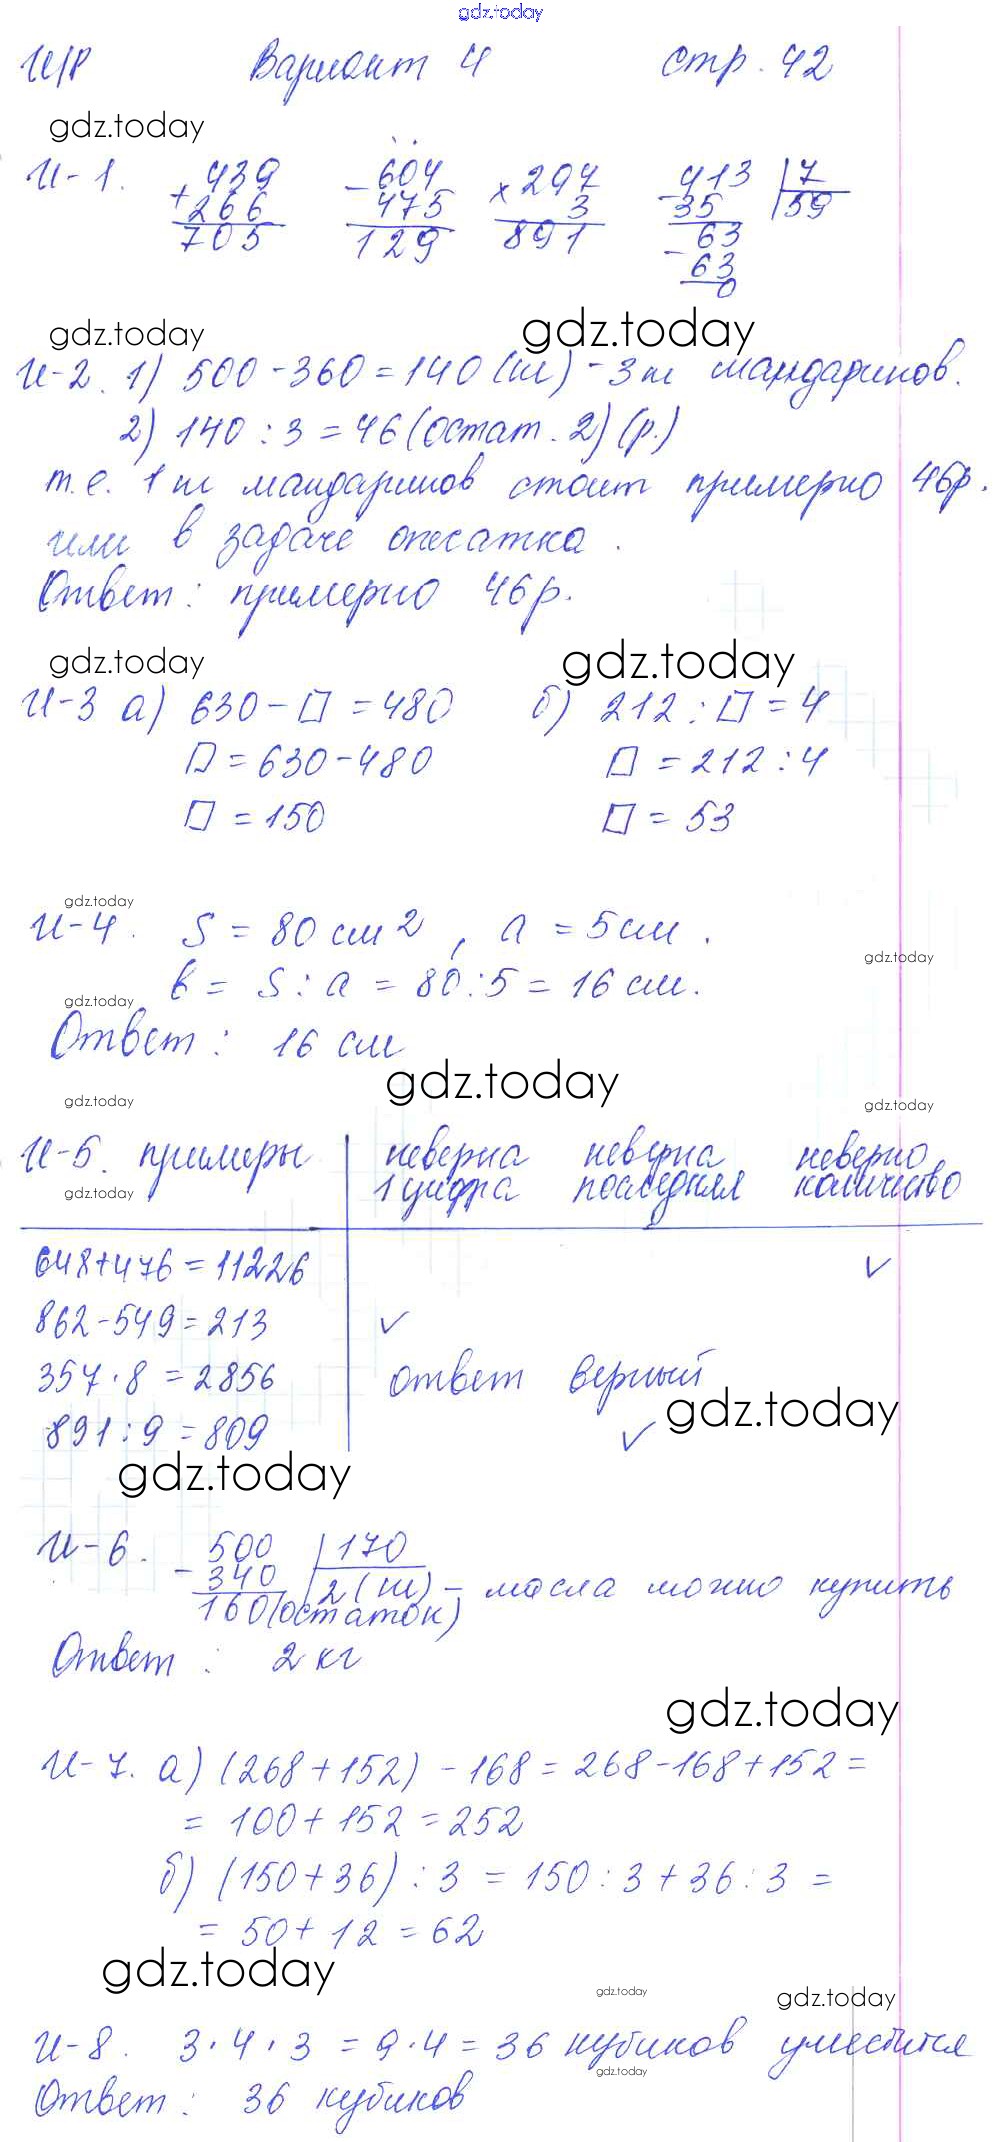 gdz.today
И/Р Вариант 4 стр. 42
gdz.today
И-1. + 439 - 604 × 297 - 413 | 7
266 475 3 35 59
705 129 891 - 63
63
0
gdz.today gdz.today
И-2. 1) 500 - 360 = 140 (ш) - 3ш мандаринов.
2) 140 : 3 = 46 (остат. 2) (р.)
т.е. 1ш мандаринов стоит примерно 46р.
или в задаче опечатка.
Ответ: примерно 46р.
gdz.today gdz.today
И-3 а) 630 - □ = 480 б) 212 : □ = 4
□ = 630 - 480 □ = 212 : 4
□ = 150 □ = 53
gdz.today
И-4. S = 80 см 2, а = 5см.
gdz.today
в = S : а = 80 : 5 = 16 см.
gdz.today
Ответ: 16 см
gdz.today
gdz.today gdz.today
И-5. примеры неверна неверна неверно
gdz.today 1 цифра последняя количество
648+476 = 11226 ✓
862-549 = 213 ✓
357 · 8 = 2856 ответ верный
gdz.today
891 : 9 = 809 ✓
gdz.today
И-6. - 500 | 170
340 2 (ш) - масла можно купить
160 (остаток)
Ответ: 2 кг
gdz.today
И-7. а) (268 + 152) - 168 = 268 - 168 + 152 =
= 100 + 152 = 252
б) (150 + 36) : 3 = 150 : 3 + 36 : 3 =
= 50 + 12 = 62
gdz.today gdz.today gdz.today
И-8. 3 · 4 · 3 = 9 · 4 = 36 кубиков уместится
gdz.today
Ответ: 36 кубиков